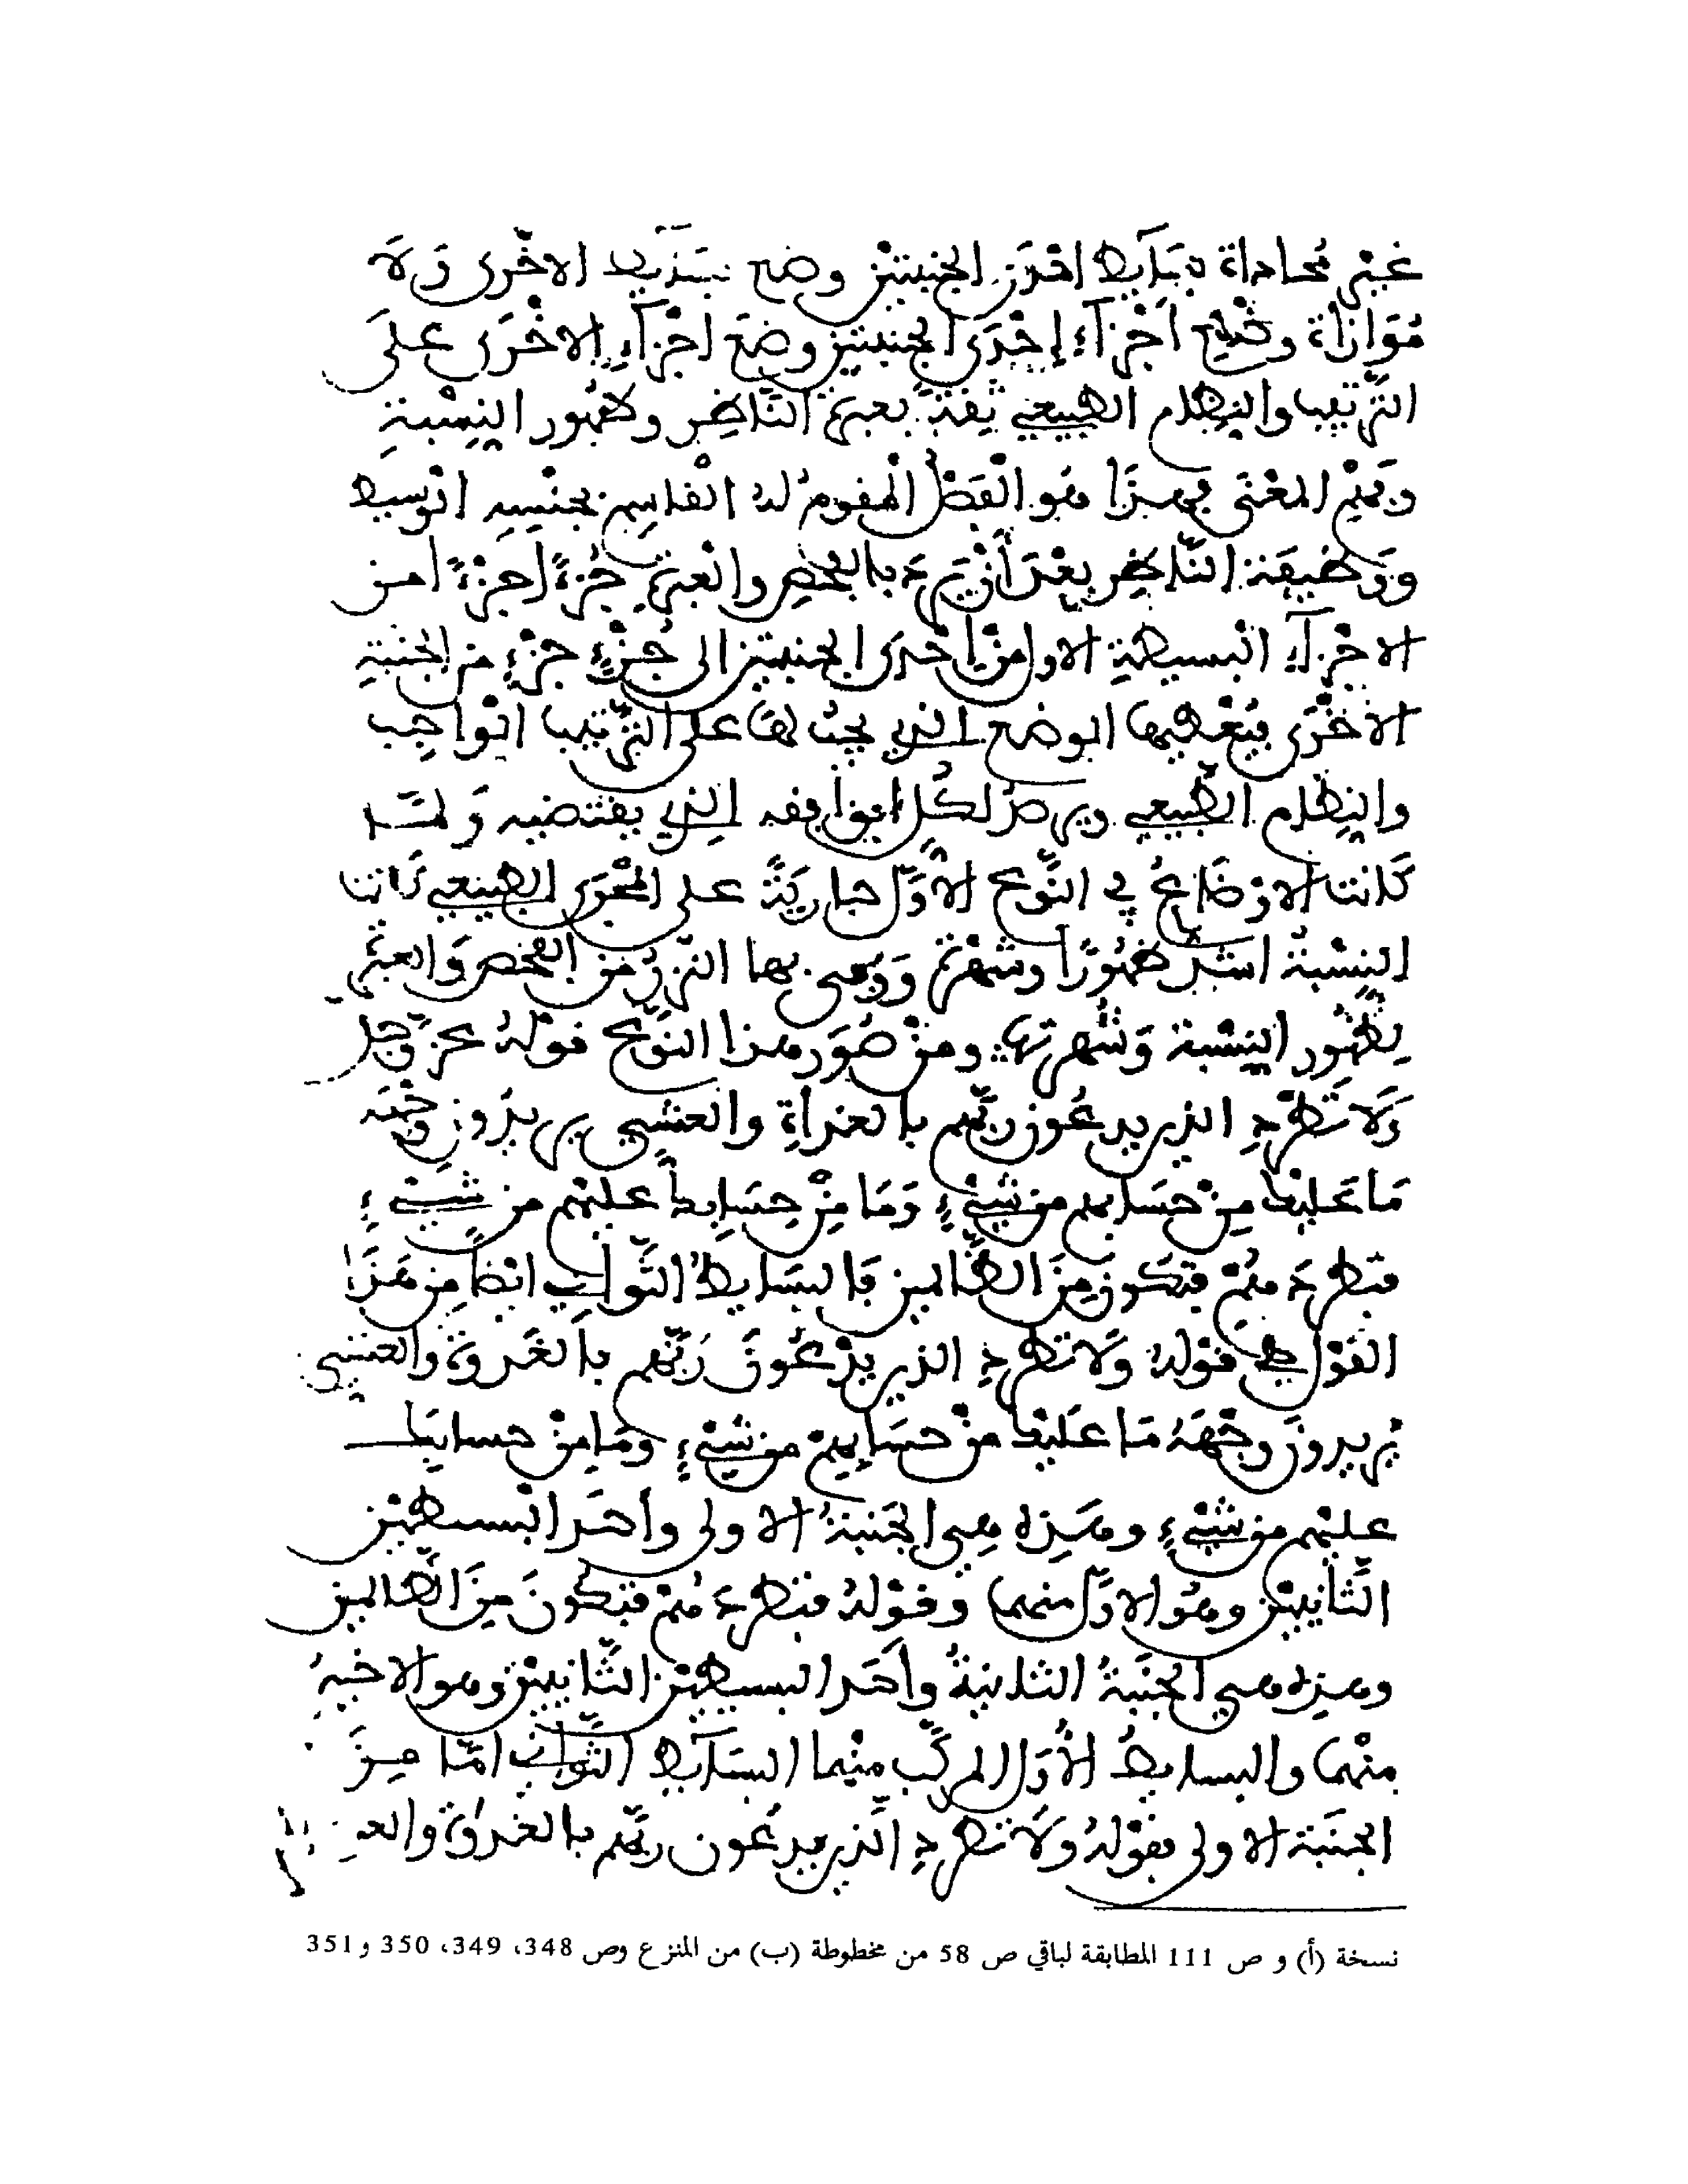 غير محاذاة بسَآيط احدى الجنبتين وضع بسآيط الاخْرى وَلاَ
مُوَازاة وضْع اَجْزآء إحْدَى الجنبتين وضعَ اجْزآء الاخْرَى علَى
التّرتيب والنِظام الطبيعي ثِقةً بعبرة النَّاظر وظهُور النِسْبة
وتميم المعْنَى في هذَا هُو الفَصْل المقوم لهُ القاسِم بجنْسِه الوسيط
ووَظيفَة النَّاظر بعْدَ أنْ يَرُدَّ بالفحْصِ والعبْرَة جُزْءًا جزْءًا مِن
الاجْزآء البسيطةِ الاول منْ إحْدَى الجنبتين الى جُزْءِ جزْءٍ من الجنبَةِ
الاخْرَى فيُعْطيها الوضع الذي يجبُ لهَا على التّرتيب الواجب
والنِظام الطَّبيعي ويرُدّ لكُلٍ ما يوافِقه الذي يقتضيه وَلمَّا
كَانت الاوْضَاعُ في النَّوع الاَوّل جاريَةً على المجْرَى الطبيعي كَانت
النِسْبةُ اشدّ ظهُورًا وشهرَةً وَوُفي بها النّزرُ من الفحْص وَالعبرة
لِظهُور النِسْبة وَشُهرتها ومنْ صُوَر هذا النّوع قولهُ عزّ وَجل
وَلاَ تَطْرُدِ الذين يدعُون ربَّهم بالغداةِ والعشِي يريدُون وجْهَه
مَا عَليْك مِنْ حسَابهم من شَيْءٍ وَمَا مِنْ حِسَابِك عليْهم من شَيْءٍ
فتطرُدَهُمْ فتكونَ مِنَ الظَّالمين فَالبسَايطُ الثَّوانِي ايْضًا مِن هَذَا
القوْل هي قوْلهُ وَلا تطرُدِ الذين يدْعُونَ رَبَّهم بالغَدوة والعشي
يُريدونَ وجْهَهُ مَا عَليْك منْ حسَابِهِمْ من شَيْءٍ وَمَا مِنْ حسابِكَ
عليْهم من شَيْءٍ وهَذِهِ هِي الجَنبَةُ الاولى وأحَد البسيطَيْن
الثَّانييْن وهُو الاوّل منهما وقوْلهُ فتطرُدَهُمْ فتكونَ مِنَ الظَّالمين
وهذِه هي الجنَبَةُ الثانيَةُ وأحَد البسيطَيْن الثَّانييْن وهو الاخيرُ
منْهما والبسايطُ الأُوَل المركّب منْهما البسَآيط الثَّوانِي امّا مِنَ
الجنَبَة الاولى فقوْلهُ وَلاَ تطرُدِ الَّذين يدعُون ربَّهم بالغدوة والعـ
نسخة (أ) و ص 111 المطابقة لباقي ص 58 من مخطوطة (ب) من المنزع وص 348، 349، 350 و 351